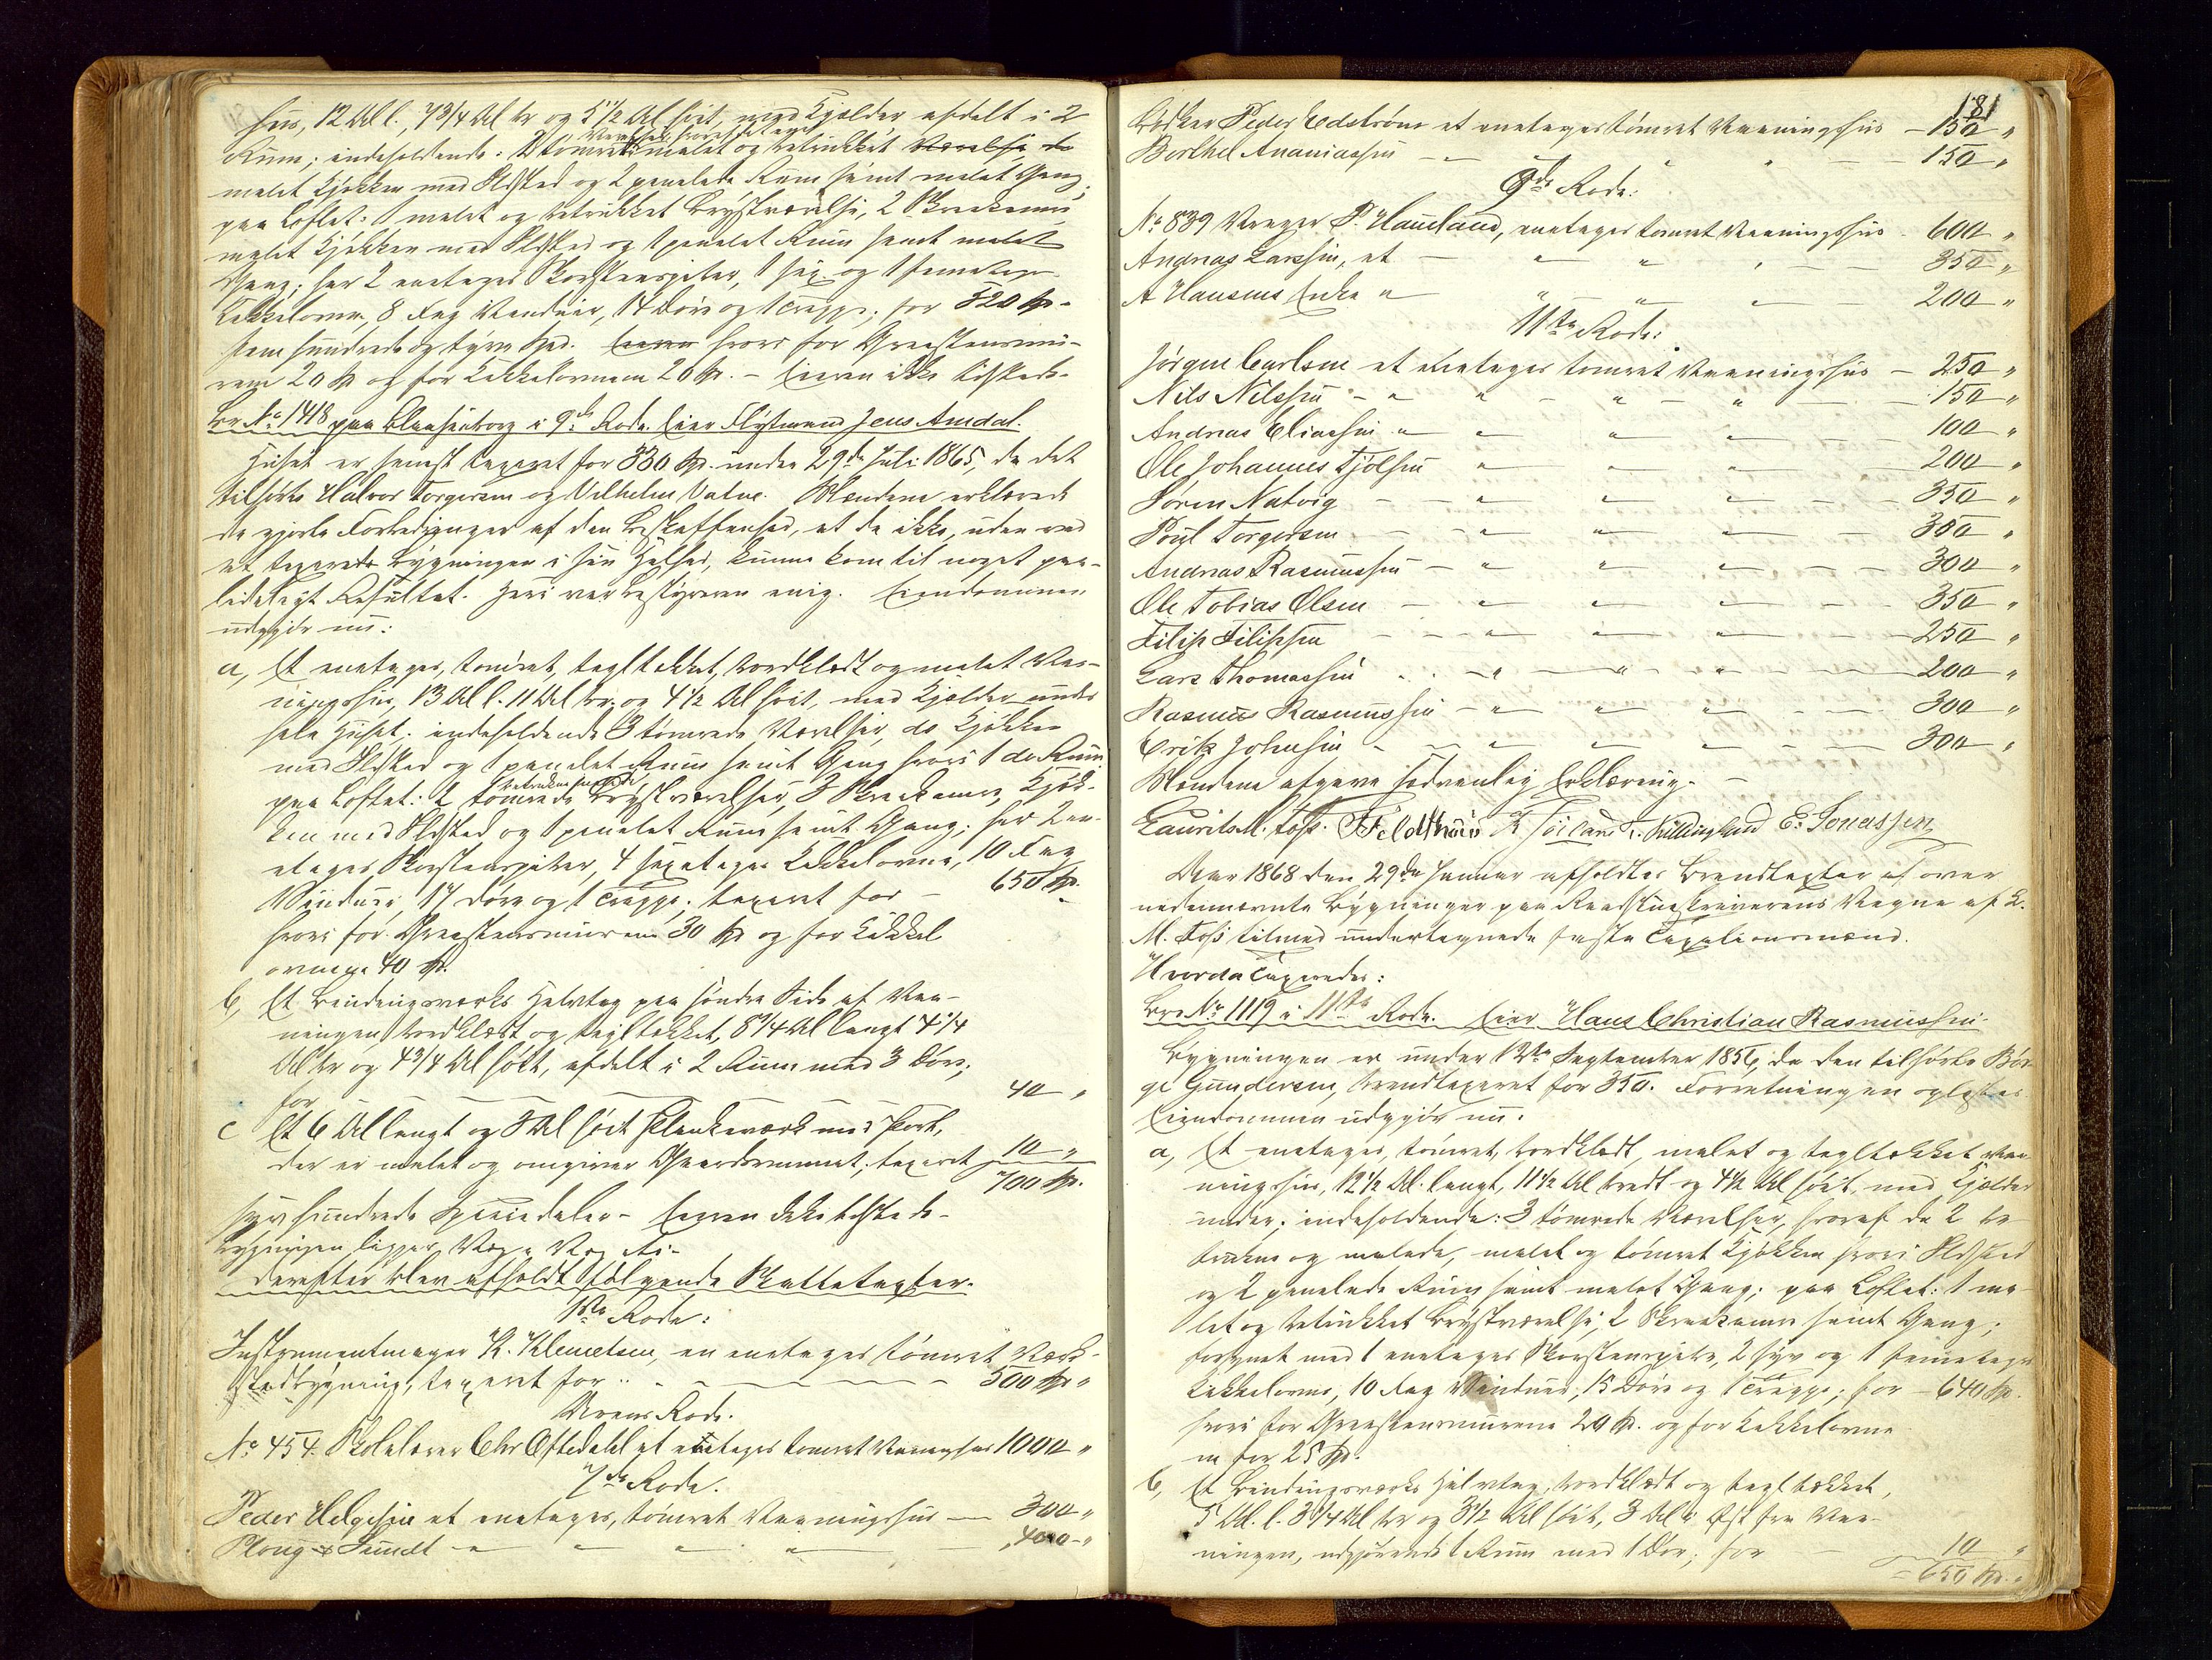 Huus, 12 Al l., 7 3/4 Al br og 5 1/2 Al høit, med Kjælder afdelt i 2
Værelser, hvoraf det ene
Rum; indeholdende: 2 tømrede malet og betrukket Værelse, do
malet Kjøkken med Ildsted og 2 panelede Rum samt malet Gang;
paa Loftet: 1 malet og betrukket Brystværelse, 2 Skraakamre
malet Kjøkken med Ildsted og 1 panelet Rum samt malet
Gang; har 2 enetages Skorstenspiber, 1 sex og 1 femetages
Kakkelovne, 8 Fag Vinduer, 14 Døre og 1 Trappe; for 520 Sp.
fem hundrede og tyve Spd. Eieren hvori for Graasteensmu-
rene 20 Sp og for Kakkelovnene 20 Sp. - Eieren ikke tilstede.
Br No 1418 paa Blaasenborg i 9de Rode. Eier Flytmand Jens Amdal.
Huset er senest taxeret for 330 Sp. under 29de Juli 1865, da det
tilhørte Halvor Torgersen og Vilhelm Vatne. Mændene erklærede
de gjorte Forbedringer af den Beskaffenhed, at de ikke, uden ved
at taxere Bygningen i sin Helhed, kunne kom til noget paa-
lideligt Resultat. Heri var Bestyreren enig. Eiendommen
udgjør nu:
a, Et enetages, tømret, tegltækket, bordklædt og malet Vaa-
ningshus, 13 Al l. 11 Al br. og 4 1/2 Al høit, med Kjælder under
hele Huset; indeholdende 3 tømrede Værelser, do Kjøkken
med Ildsted og 1 panelet Rum samt Gang hvori 1 do Rum
paa Loftet: 2 tømrede Brystværelser, 3 Skraakamre, Kjøk-
ken med Ildsted og 1 panelet Rum samt Gang; har 2 en-
etages Skorstenspiber, 4 sexetages Kakkelovne, 10 Fag
Vinduer, 17 Døre og 1 Trappe; taxeret for - 650 Sp.
hvori for Graasteensmurene 30 Sp og for Kakkel
ovnene 40 Sp.
b, Et Bindingsværks Halvtag paa søndre Side af Vaa-
ningen, bordklædt og tegltækket, 8 3/4 Al langt 4 1/4
Al br og 4 3/4 Al høit, afdelt i 2 Rum med 3 Døre;
for - - - 40 "
c Et 6 Al langt og 3 Al høit Plankeværk med Port,
der er malet og omgiver Gaardsrummet; taxeret 10 "
700 Sp.
syv hundrede Speciedaler - Eieren ikke tilstede -
Bygningen ligger Væg i Væg
Derefter blev afholdt følgende Skattetaxter.
1ste Rode:
Instrumentmager K. Klemetsen, en enetages tømret Værk-
stedbygning, taxeret for - - - 500 Sp "
Rode.
No 454. Skolelærer Chr Oftedahl et enetages tømret Vaaningshus 1000 "
7de Rode.
Peder Helgesen et enetages, tømret Vaaningshus - 300 "
Ploug & Sundt - " " " " 400 "
181
Bødker Peder Edstrøm et enetages tømret Vaaningshus - 150 "
Berthel Ananiassen - " " " - 150 "
9de Rode:
No 839 Væver P. Haueland, enetages tømret Vaaningshus - 600 "
Andreas Larssen, et - " " " - 350 "
A Hansens Enke " " " " 200 "
11te Rode:
Jørgen Carlsen et enetages tømret Vaaningshus - 250 "
Nils Nilssen - " " " " 150 "
Andreas Eliassen " " " " 100 "
Ole Johannes Fjølsen " " " 200 "
Søren Natvig - " " " 350 "
Poul Torgersen - " " " 300 "
Andreas Rasmussen - " " " 300 "
Ole Tobias Olsen - " " " 350 "
Filip Filipsen - " " " 250 "
Lars Thomassen - " " " 200 "
Rasmus Rasmussen - " " " 300 "
Erik Johnsen - " " " 300 "
Mændene afgave sædvanlig Erklæring. -
Laurits M. Foss. F Feldthuus K Tøiland T. Kullingland E. Jonassen
Aar 1868 den 29de Januar afholdtes Brandtaxter af over
nedennævnte Bygninger paa Raadstueskriverens Vegne af L.
M. Foss tilmed undertegnede faste Taxationsmænd.
Hvorda taxeredes:
Br. No 1119 i 11te Rode. Eier Hans Christian Rasmussen.
Bygningen er under 12te September 1856, da den tilhørte Bør-
ge Gundersen, brandtaxeret for 350. Forretningen oplæstes
Eiendommen udgjør nu:
a, Et enetages, tømret, bordklædt, malet og tegltækket Vaa-
ningshus, 12 1/2 Al. langt, 11 1/2 Al bredt og 4 1/2 Al høit, med Kjælder
under; indeholdende: 3 tømrede Værelser, hvoraf de 2 be-
trukne og malede, malet og tømret Kjøkken hvori Ildsted
og 2 panelede Rum samt malet Gang; paa Loftet: 1 ma-
let og betrukket Brystværelse, 2 Skraakamre samt Gang;
forsynet med 1 enetages Skorstenspibe, 2 syv og 1 femetages
Kakkelovne, 10 Fag Vinduer, 15 Døre og 1 Trappe; for - 640 Sp.
hvori for Graasteensmurene 20 Sp. og for Kakkelovne
ne for 25 Sp.
b, Et Bindingsværks Halvtag, bordklædt og tegltækket,
5 Al. l. 3 1/4 Al br og 3 1/2 Al høit, 3 Al i Øst fra Vaa-
ningen, udgjørende 1 Rum med 1 Dør; for 10 "
= 650 Sp. "